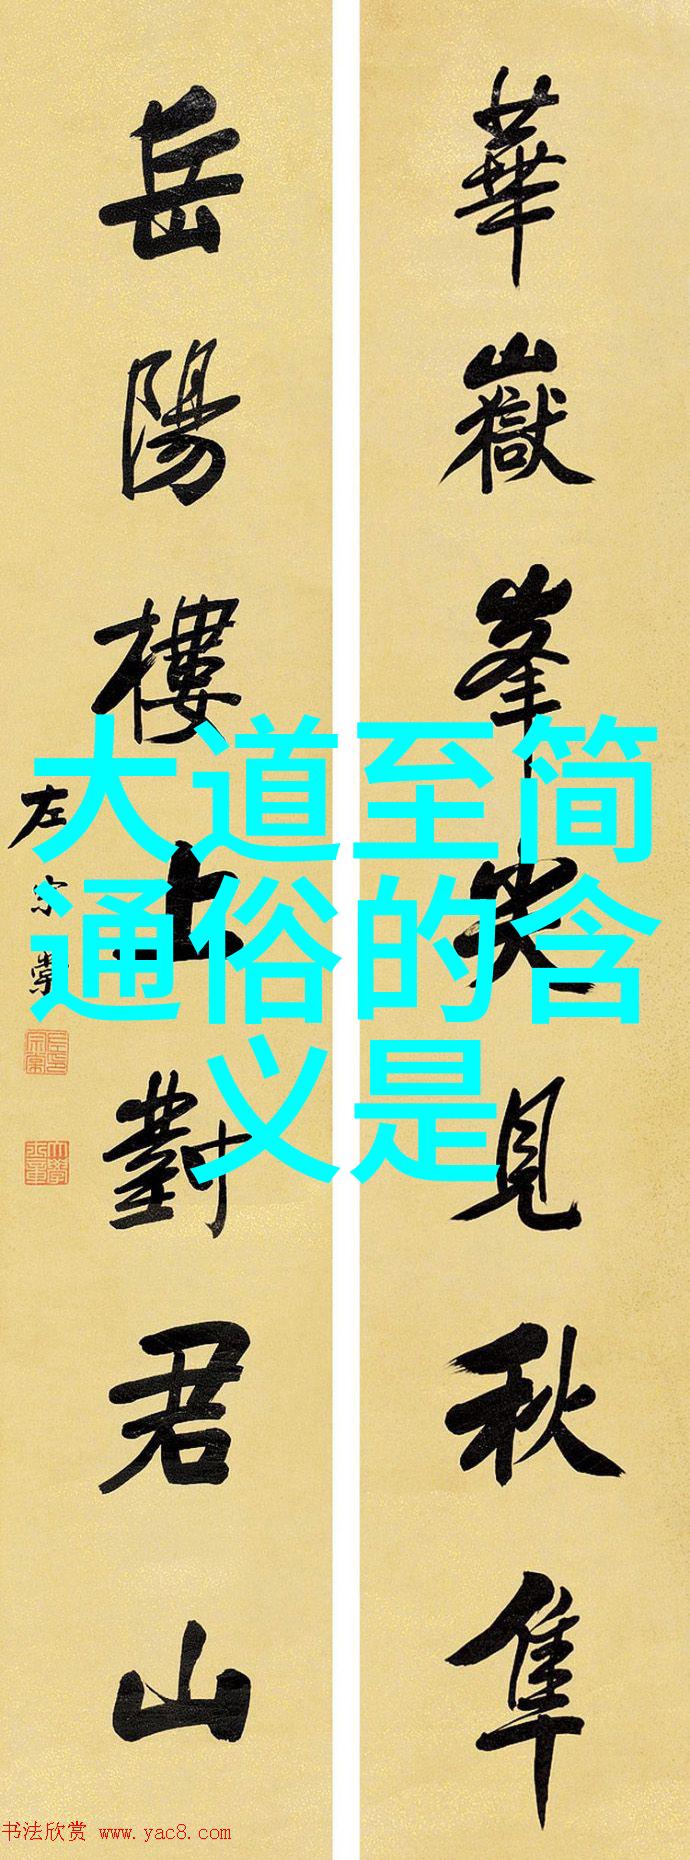 華嶽峯尖見秋隼
岳陽樓上對君山
左宗棠
大道至简
通俗的含
义是
书法欣赏 www.yac8.com